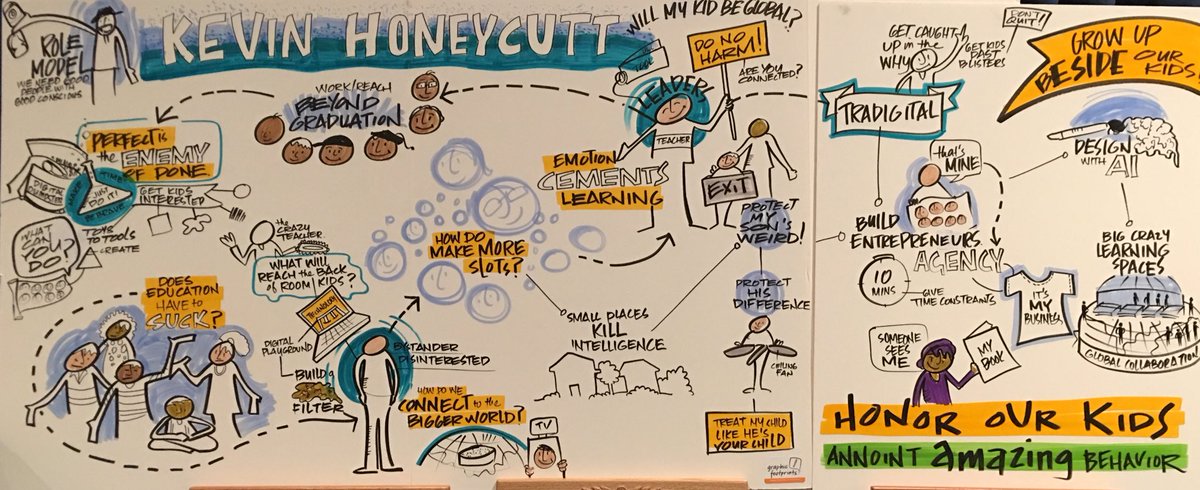 KEVIN HONEYCUTT
ROLE
MODEL
WE NEED GOOD
PEOPLE WITH
GOOD CONSCIOUS
PERFECT IS
the ENEMY
OF DONE
DIGITAL
MAKE
TIME
JUST
DO IT!
BE BRAVE
GET KIDS
INTERESTED
TOYS TO TOOLS
CREATE
WHAT
CAN
YOU
DO?
WORK/REACH
BEYOND
GRADUATION
the
CRAZY
TEACHER
WHAT WILL
REACH the BACK
OF ROOM KIDS?
DOES
EDUCATION
HAVE to
SUCK?
TECHNOLOGY
DIGITAL
PLAYGROUND
BUILD
FILTER
BYSTANDER
DISINTERESTED
HOW DO WE
CONNECT to the
BIGGER WORLD?
TV
HOW DO WE
MAKE MORE
SLOTS?
SMALL PLACES
KILL
INTELLIGENCE
EMOTION
CEMENTS
LEARNING
WILL MY KID BE GLOBAL?
DO NO
HARM!
ARE YOU
CONNECTED?
LEADER
TEACHER
EXIT
PROTECT
MY
SON'S
WEIRD!
PROTECT
HIS
DIFFERENCE
CEILING
FAN
TREAT MY CHILD
LIKE HE'S
YOUR CHILD
graphic
footprints
GET CAUGHT
UP in the
WHY
DON'T
QUIT!
GET KIDS
PAST
BLISTERS
GROW UP
BESIDE OUR
KIDS
TRADIGITAL
that's
MINE
DESIGN
WITH AI
BUILD
ENTREPRENEURS
AGENCY
10
MINS
GIVE
TIME CONSTRAINTS
IT'S
MY
BUSINESS
BIG CRAZY
LEARNING
SPACES
GLOBAL COLLABORATION
SOMEONE
SEES
ME
MY
BOOK
HONOR OUR KIDS
ANNOINT amazing BEHAVIOR